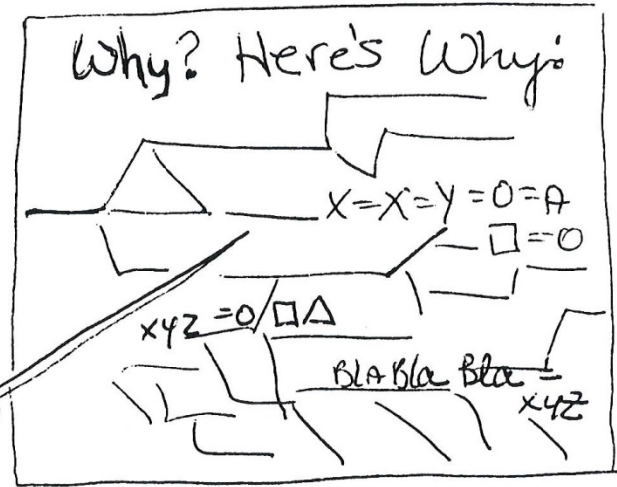 Why? Here's Why:
X=X=Y=O=A
□=O
XYZ=O/□△
BLA Bla Bla =
XYZ